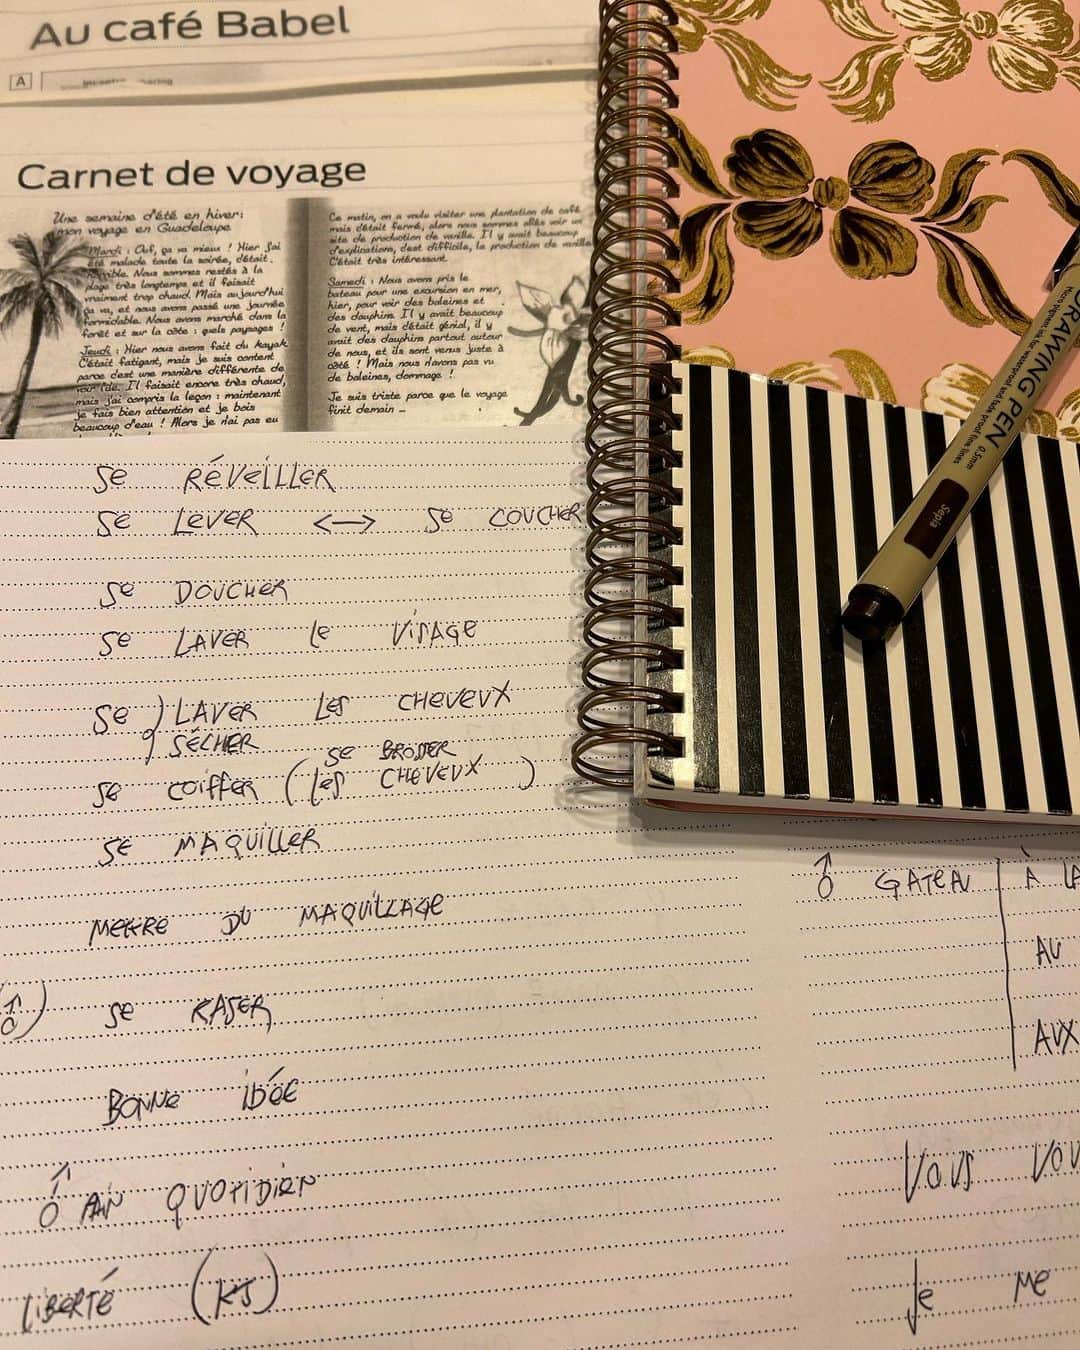 Au café Babel
A
Carnet de voyage
Une semaine d'été en hiver:
mon voyage en Guadeloupe
Mardi : Ouf, ça va mieux ! Hier j'ai
été malade toute la soirée, c'était
horrible. Nous sommes restés à la
plage très longtemps et il faisait
vraiment trop chaud. Mais aujourd'hui
ça va, et nous avons passé une journée
formidable. Nous avons marché dans la
forêt et sur la côte : quels paysages !
Jeudi : Hier nous avons fait du kayak.
C'était fatigant, mais je suis content
parce que c'est une manière différente de
voir l'île. Il faisait encore très chaud,
mais j'ai compris la leçon : maintenant
je fais bien attention et je bois
beaucoup d'eau ! Alors je n'ai pas eu
Ce matin, on a voulu visiter une plantation de café
mais c'était fermé, alors nous sommes allés voir un
site de production de vanille. Il y avait beaucoup
d'explications, c'est difficile, la production de vanille
C'était très intéressant.
Samedi : Nous avons pris le
bateau pour une excursion en mer,
hier, pour voir des baleines et
des dauphins. Il y avait beaucoup
de vent, mais c'était génial, il y
avait des dauphins partout autour
de nous, et ils sont venus juste à
côté ! Mais nous n'avons pas vu
de baleines, dommage !
Je suis triste parce que le voyage
finit demain ...
DRAWING PEN 0.5mm
Micro pigment ink for waterproof and fade proof fine lines
Sepia
Se RÉVEILLER
SE LEVER <—> Se COUCHER
Se DOUCHER
SE LAVER le VISAGE
Se LAVER LES CHEVEUX
SÉCHER
SE BROSSER
Se COIFFER (les CHEVEUX)
SE MAQUILLER
METTRE DU MAQUILLAGE
(♂) SE RASER
BONNE IDÉE
♂ PAIN QUOTIDIEN
LIBERTÉ (KS)
♂ GATEAU À LA
AU
AUX
VOUS VOU
Je Me